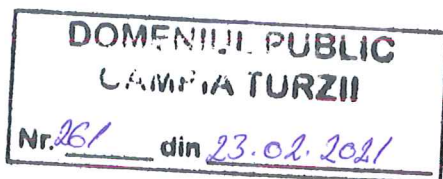 DOMENIUL PUBLIC
CAMPIA TURZII
Nr. 261 din 23.02.2021